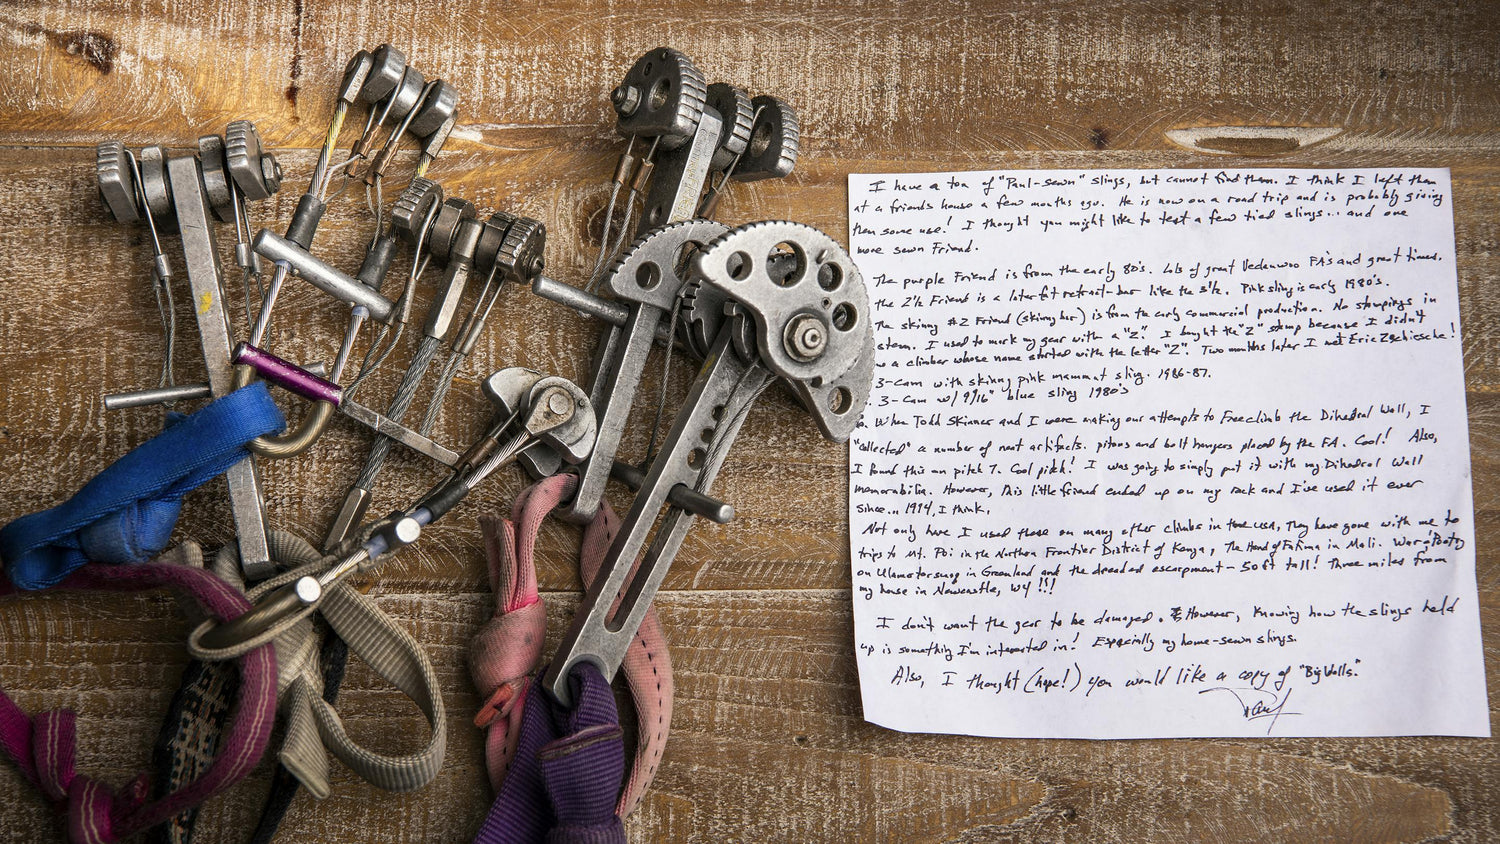 I have a ton of "Paul-sewn" slings, but cannot find them. I think I left them
at a friends house a few months ago. He is now on a road trip and is probably giving
them some use! I thought you might like to test a few tied slings... and one
more sewn Friend.
The purple Friend is from the early 80's. Lots of great Vedauwoo FA's and great times.
the 2½ Friend is a later-fit retrofit-bar like the 3½. Pink sling is early 1980's.
The skinny #2 Friend (skinny bar) is from the early commercial production. No stampings in
stem. I used to mark my gear with a "Z". I bought the "Z" stamp because I didn't
a climber whose name started with the letter "Z". Two months later I met Eric Zschiesche!
3-Cam with skinny pink mammut sling. 1986-87.
3-Cam w/ 9/16" blue sling 1980's
When Todd Skinner and I were making our attempts to Freeclimb the Dihedral Wall, I
"collected" a number of neat artifacts. pitons and bolt hangers placed by the FA. Cool! Also,
I found this on pitch 7. Cool pitch! I was going to simply put it with my Dihedral Wall
memorabilia. However, this little friend ended up on my rack and I've used it ever
since... 1994, I think.
Not only have I used these on many other climbs in the USA, they have gone with me to
trips to Mt. Poi in the Northern Frontier District of Kenya, The Hand of Fatima in Mali. War & Poetry
on Ulamertorsuaq in Greenland and the dreaded escarpment - 50 ft tall! Three miles from
my house in Newcastle, WY!!!
I don't want the gear to be damaged. However, knowing how the slings held
up is something I'm interested in! Especially my home-sewn slings.
Also, I thought (hope!) you would like a copy of "Big Walls".
Paul